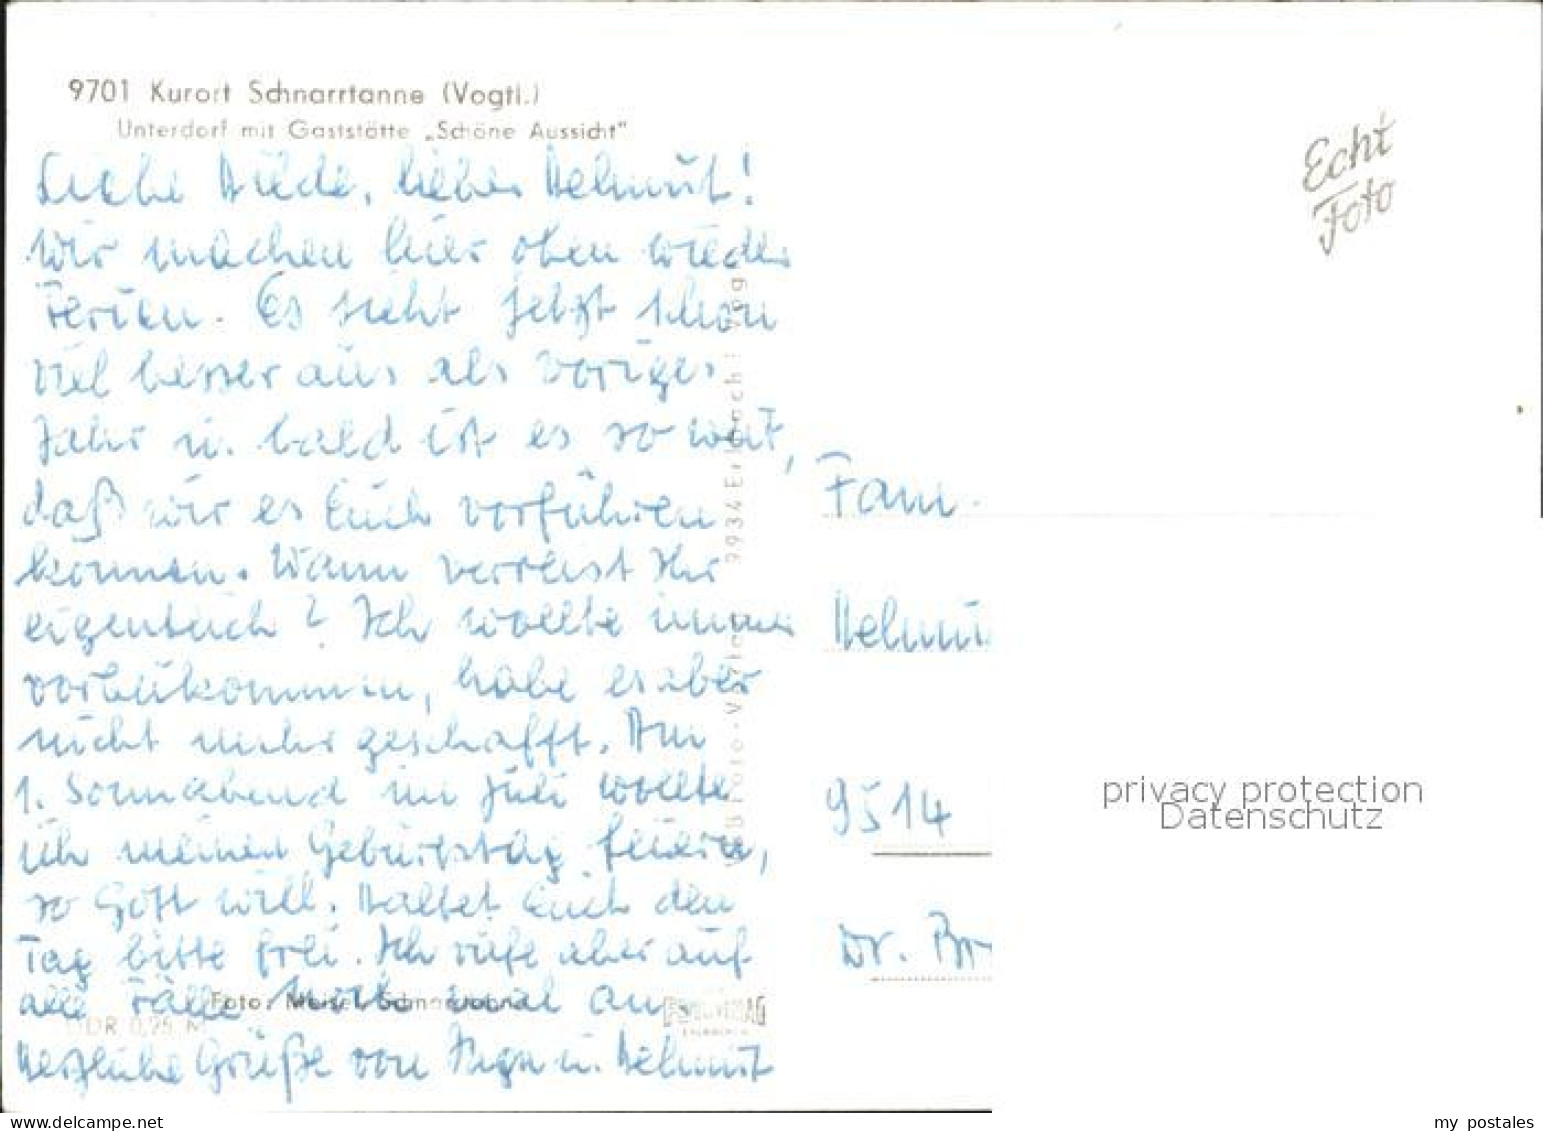 9701 Kurort Schnarrtanne (Vogtl.)
Unterdorf mit Gaststätte „Schöne Aussicht"
Echt
Foto
Liebe Hilde, lieber Helmut!
Wir machen hier oben wieder
Ferien. Es sieht jetzt schon
viel besser aus als voriges
Jahr u. bald ist es so weit,
daß wir es Euch vorführen
können. Wann verreist Ihr
eigentlich? Ich wollte immer
vorbeikommen, habe es aber
nicht mehr geschafft. Am
1. Sonnabend im Juli wollte
ich meinen Geburtstag feiern,
so Gott will. Haltet Euch den
Tag bitte frei. Ich rufe aber auf
alle Fälle noch mal an
Herzliche Grüße von u. Helmut
Foto: Meisel, Schnarrtanne
DDR 0,25 M
9934 Erlbach i. Vogtl.
Fam.
Helmu
9514
Dr. Br
privacy protection
Datenschutz
my postales
www.delcampe.net